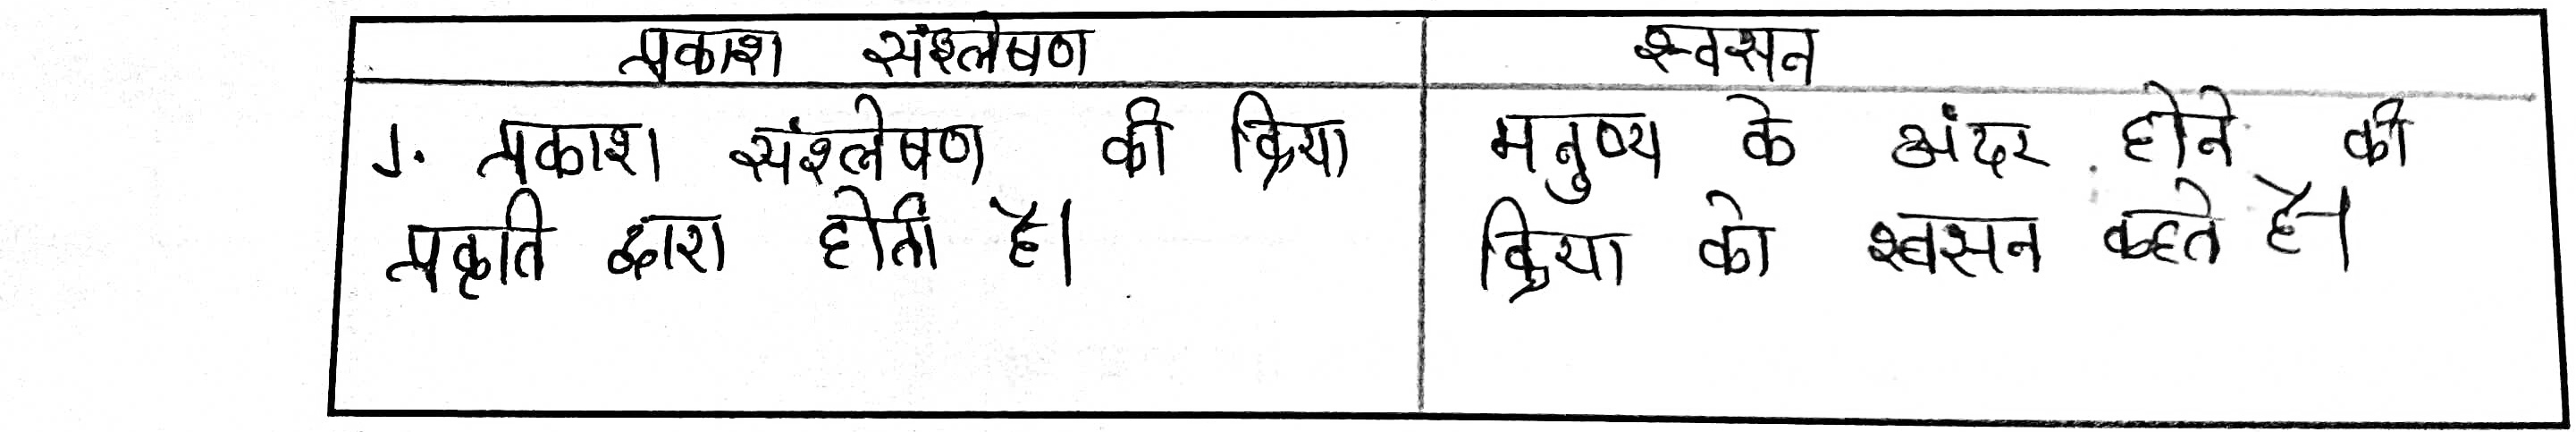 प्रकाश संश्लेषण
श्वसन
1. प्रकाश संश्लेषण की क्रिया
प्रकृति द्वारा होती है।
मनुष्य के अंदर होने की
क्रिया को श्वसन कहते है।